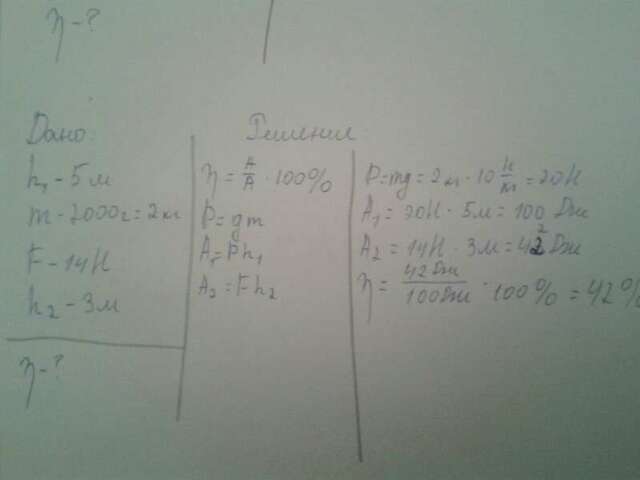 η - ?
Дано:
h₁ - 5 м
m - 2000 г = 2 кг
F - 14 Н
h₂ - 3 м
η - ?
Решение
η = A/A · 100%
P = gm
A₁ = Ph₁
A₂ = Fh₂
P = mg = 2 кг · 10 Н/кг = 20 Н
A₁ = 20 Н · 5 м = 100 Дж
A₂ = 14 Н · 3 м = 42 Дж
η = 42 Дж/100 Дж · 100% = 42%